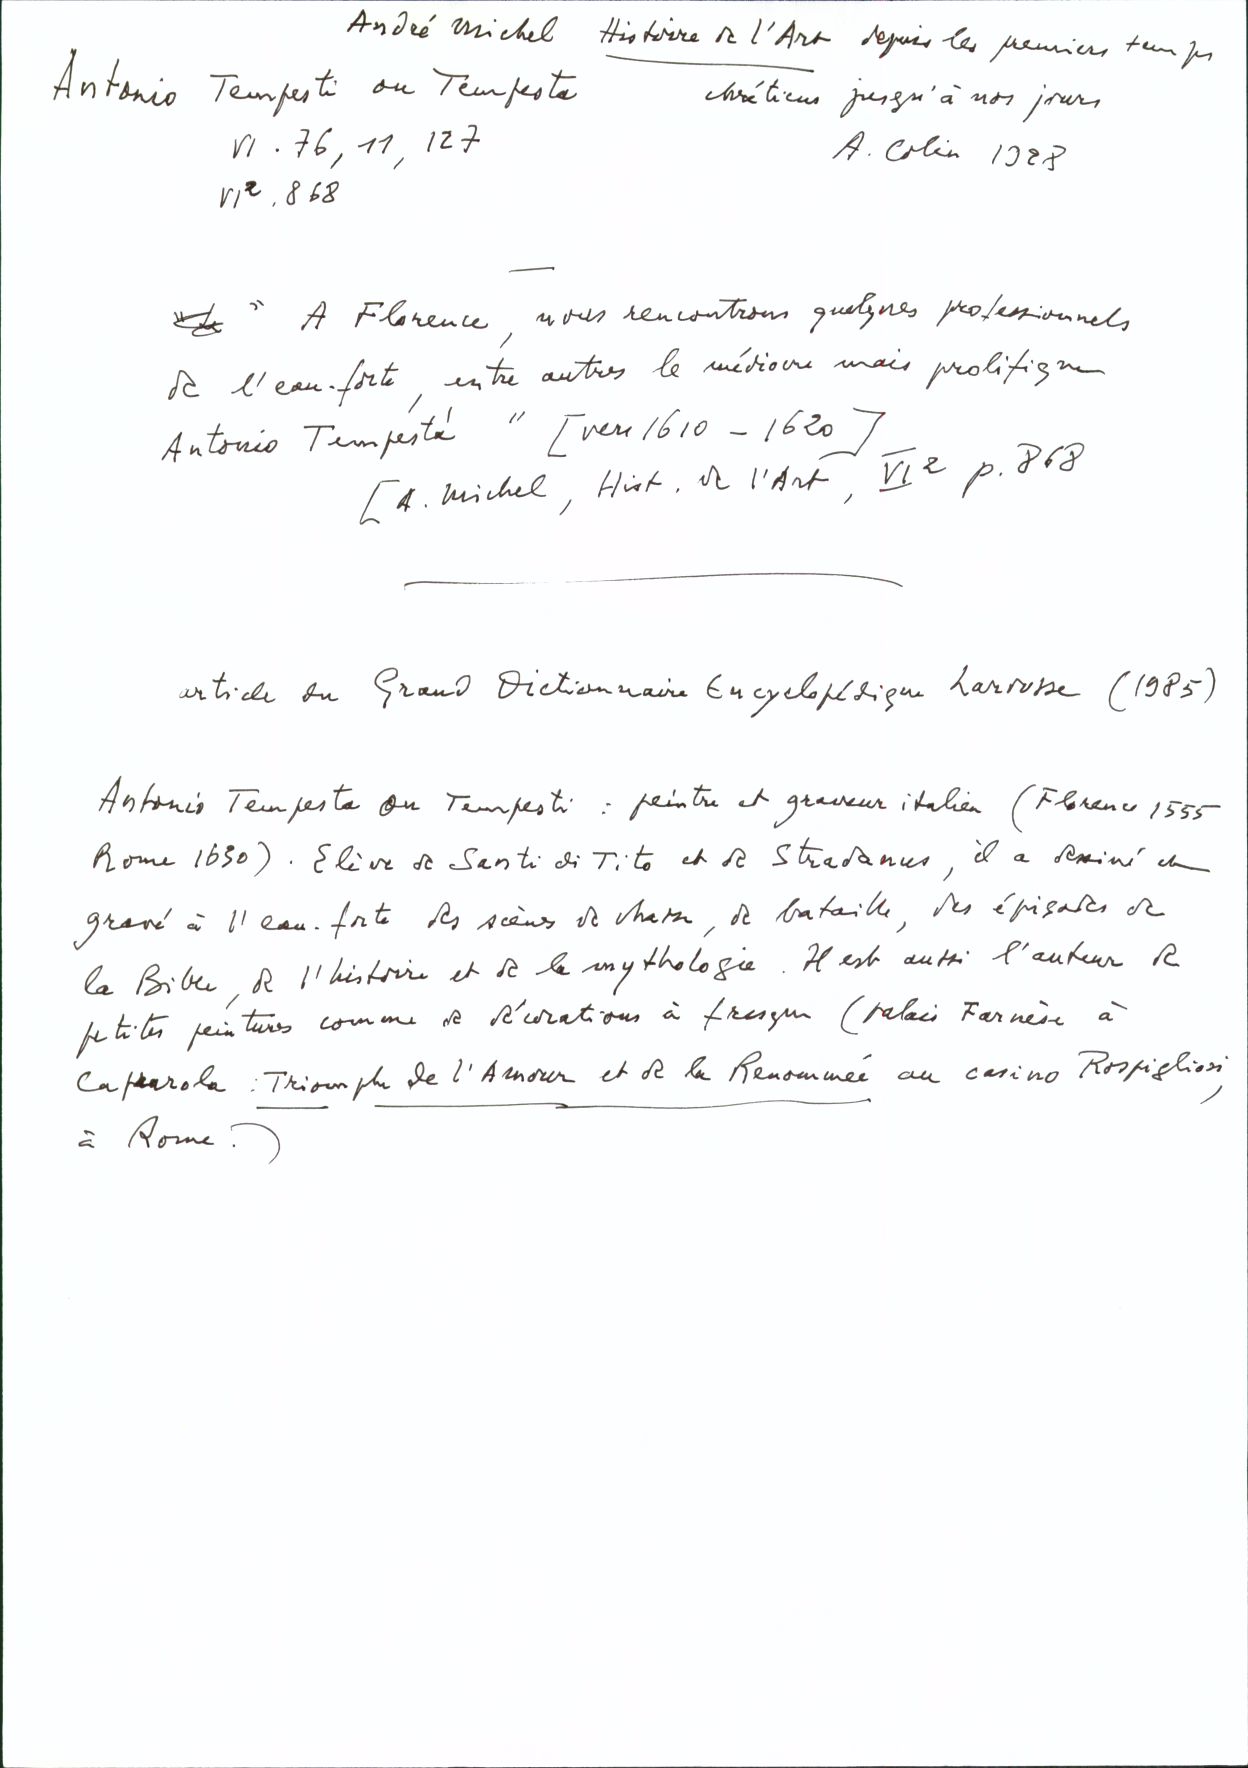 André Michel Histoire de l'Art depuis les premiers temps
Antonio Tempesti ou Tempesta chrétiens jusqu'à nos jours
VI. 76, 11, 127 A. Colin 1928
VI². 868
" A Florence, nous rencontrons quelques professionnels
de l'eau-forte, entre autres le médiocre mais prolifique
Antonio Tempesta " [vers 1610 - 1620]
[A. Michel, Hist. de l'Art, VI² p. 868
article du Grand Dictionnaire Encyclopédique Larousse (1985)
Antonio Tempesta ou Tempesti : peintre et graveur italien (Florence 1555
Rome 1630). Elève de Santi di Tito et de Stradanus, il a dessiné et
gravé à l'eau-forte des scènes de chasse, de bataille, des épisodes de
la Bible, de l'histoire et de la mythologie. Il est aussi l'auteur de
petites peintures comme de décorations à fresque (palais Farnèse à
Caprarola : Triomphe de l'Amour et de la Renommée au casino Rospigliosi,
à Rome.)